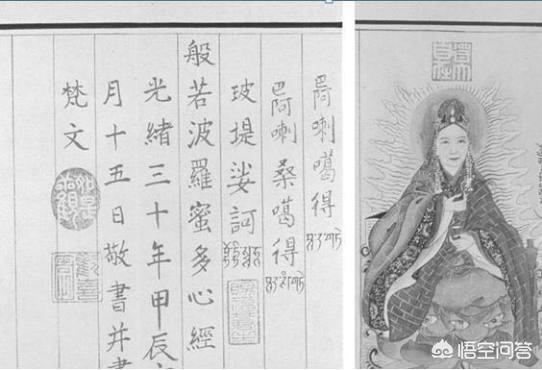 喇噶得
阿喇桑噶得
玻提娑訶
般若波羅蜜多心經
光緒三十年甲辰
月十五日敬書并
梵文
悟空问答